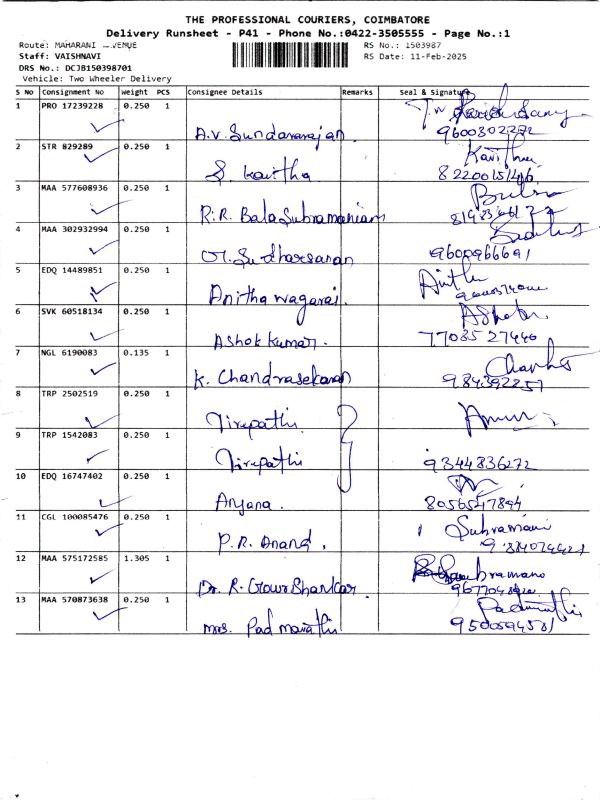 THE PROFESSIONAL COURIERS, COIMBATORE
Delivery Runsheet - P41 - Phone No.:0422-3505555 - Page No.:1
Route: MAHARANI AVENUE
RS No.: 1503987
Staff: VAISHNAVI
RS Date: 11-Feb-2025
DRS No.: DCJB150398701
Vehicle: Two Wheeler Delivery
S No Consignment No Weight PCS Consignee Details Remarks Seal & Signature
1 PRO 17239228 0.250 1
A.V. Sundararajan 9600302272
2 STR 829289 0.250 1
S. Kavitha
3 MAA 577608936 0.250 1
R.R. Bala Subramaniam
4 MAA 302932994 0.250 1
Sudharsanan 9600966691
5 EDQ 14489851 0.250 1
Anitha nagaraj
6 SVK 60518134 0.250 1 Ashok
Ashok kumar. 77085 27440
7 NGL 6190083 0.135 1
K. Chandrasekaran 984392257
8 TRP 2502519 0.250 1
Tirupathi
9 TRP 1542083 0.250 1
Tirupathi 9344836272
10 EDQ 16747402 0.250 1
Anjana. 8056547894
11 CGL 100085476 0.250 1 Subramani
P.R. Anand.
12 MAA 575172585 1.305 1
Dr. R. Gowri Shankar
13 MAA 570873638 0.250 1 Padmavathi
Mrs. Padmavathi 9500594581